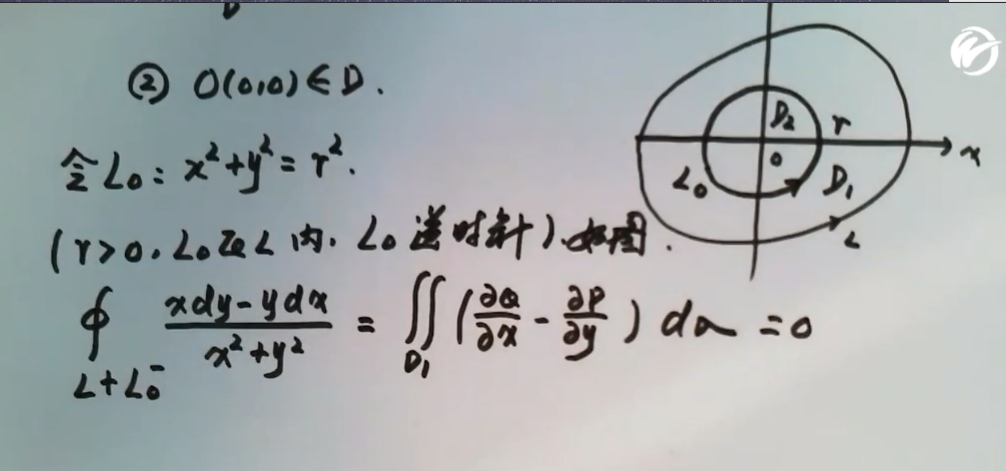 ② O(0,0)∈D.
令L₀: x²+y²=r².
(r>0, L₀在L内, L₀逆时针), 如图.
∮_{L+L₀⁻} (xdy-ydx)/(x²+y²) = ∬_{D₁} (∂Q/∂x - ∂P/∂y) dσ = 0
D₂ r
0 x
L₀ D₁
L